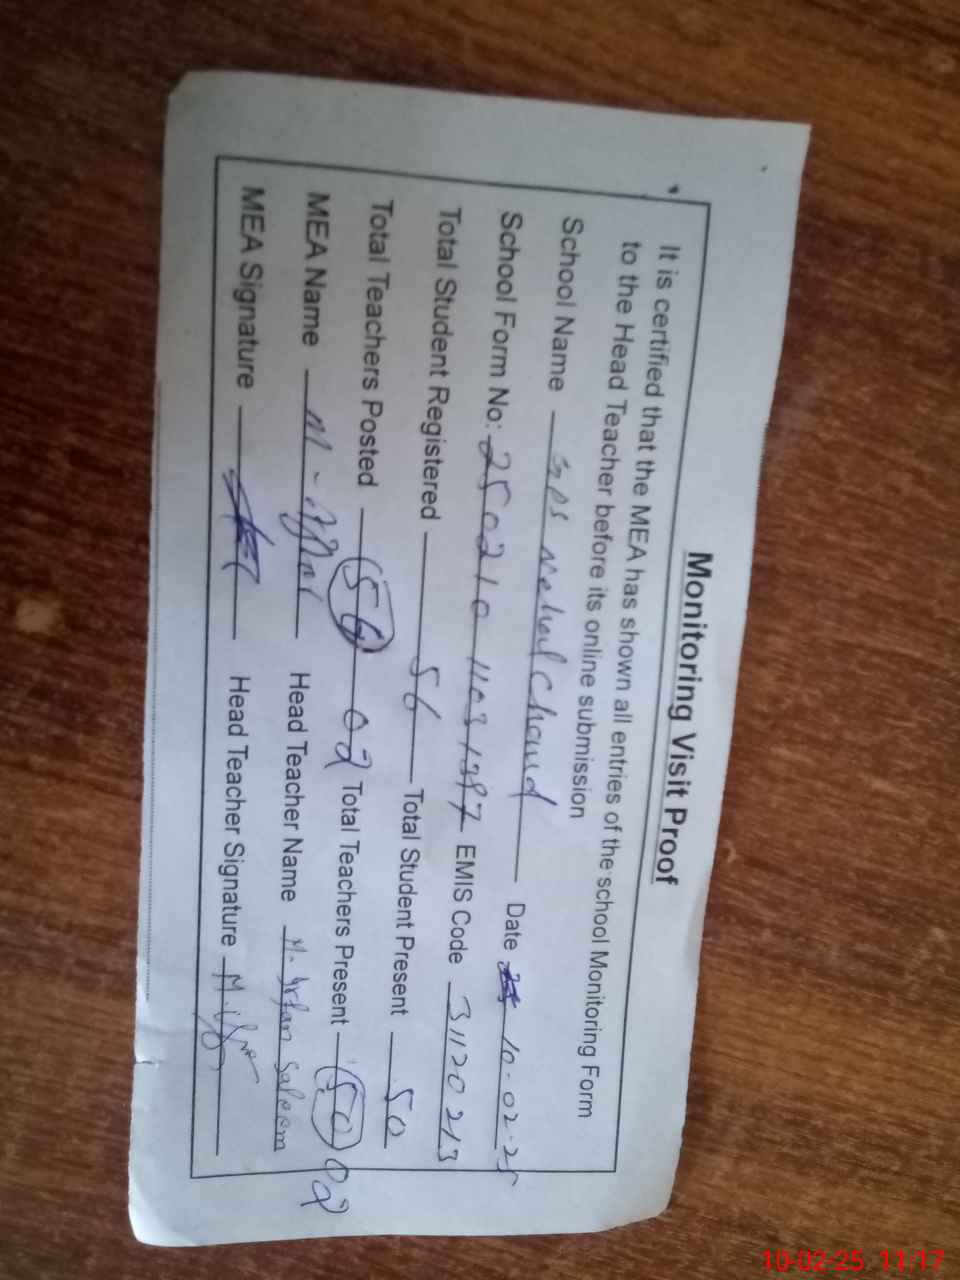 Monitoring Visit Proof
It is certified that the MEA has shown all entries of the school Monitoring Form
to the Head Teacher before its online submission
School Name GPS Chand Date 10-02-25
School Form No: EMIS Code 31120213
Total Student Registered 56 Total Student Present 50
Total Teachers Posted 56 02 Total Teachers Present 50 02
MEA Name M- Head Teacher Name M. Irfan Saleem
MEA Signature Head Teacher Signature M. Irfan
10-02-25 11:17